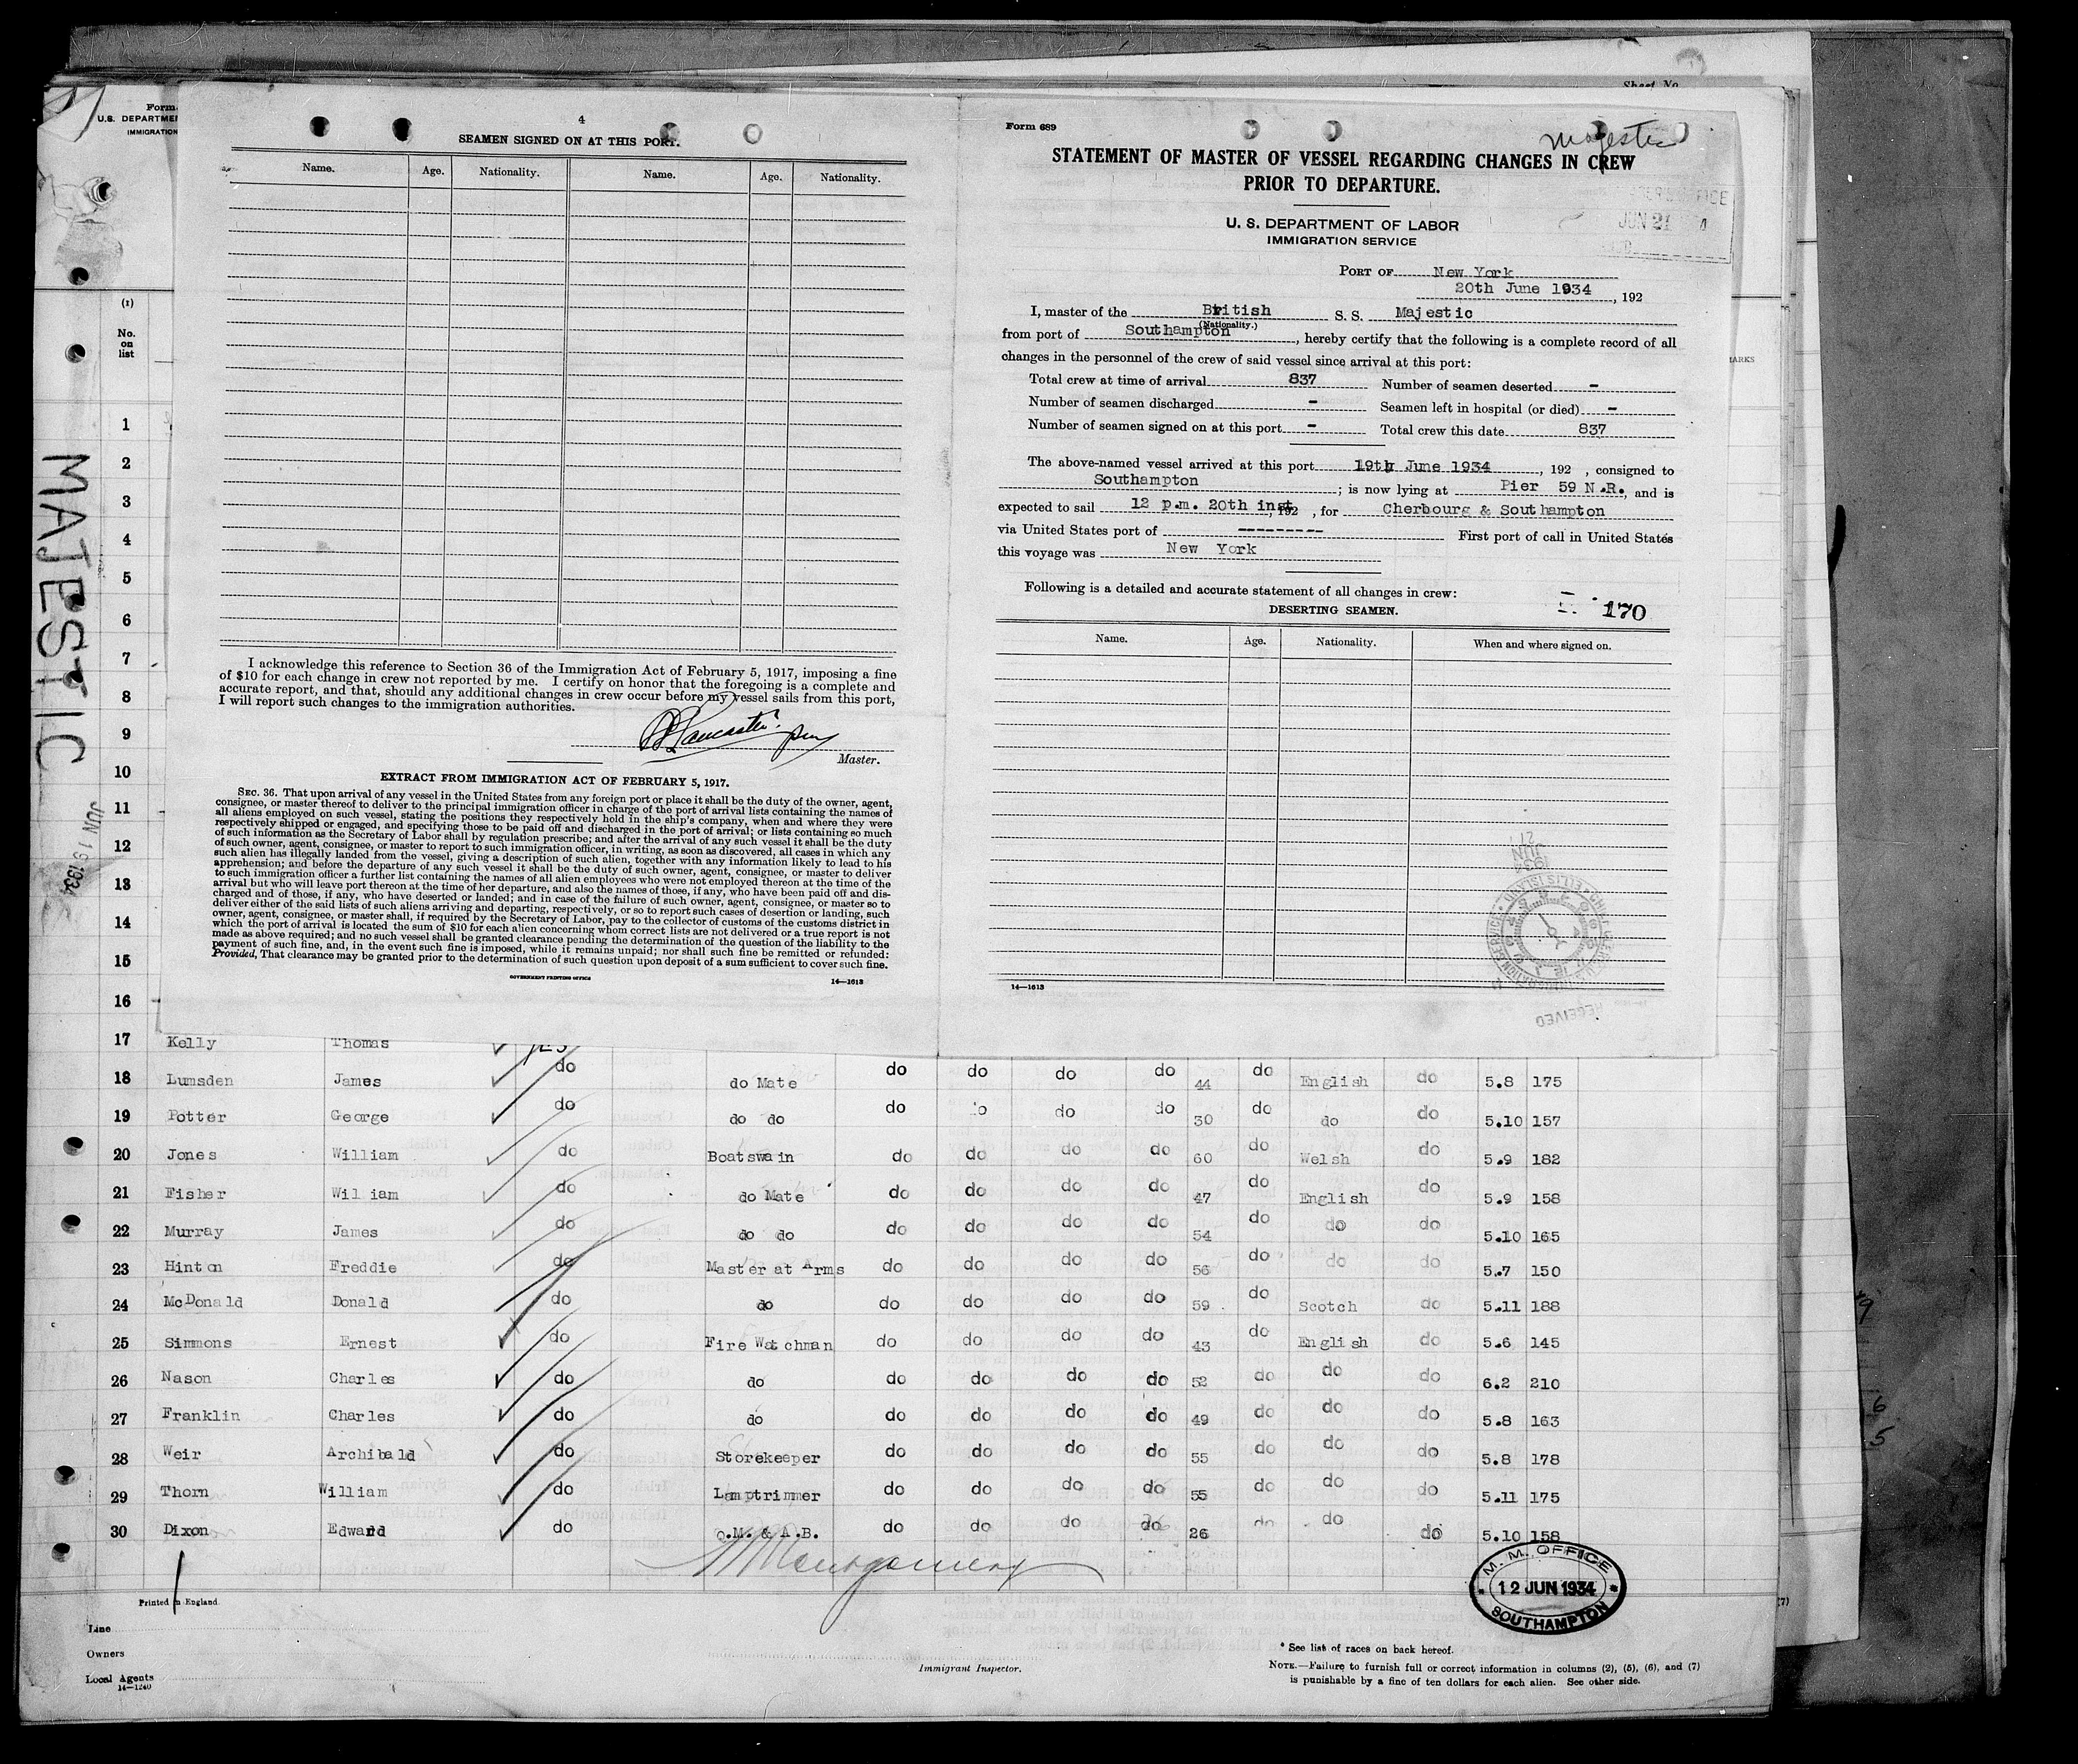 Sheet No.
Form
U.S. DEPARTME
IMMIGRATION
(1)
No.
on
list
1
2
3
4
5
6
7
8
9
10
11
12
13
14
15
16
MAJESTIC
JUN 19 1934
4
SEAMEN SIGNED ON AT THIS PORT.
Name. Age. Nationality. Name. Age. Nationality.
I acknowledge this reference to Section 36 of the Immigration Act of February 5, 1917, imposing a fine
of $10 for each change in crew not reported by me. I certify on honor that the foregoing is a complete and
accurate report, and that, should any additional changes in crew occur before my vessel sails from this port,
I will report such changes to the immigration authorities.
Lancaster
Master.
EXTRACT FROM IMMIGRATION ACT OF FEBRUARY 5, 1917.
SEC. 36. That upon arrival of any vessel in the United States from any foreign port or place it shall be the duty of the owner, agent,
consignee, or master thereof to deliver to the principal immigration officer in charge of the port of arrival lists containing the names of
all aliens employed on such vessel, stating the positions they respectively hold in the ship's company, when and where they were
respectively shipped or engaged, and specifying those to be paid off and discharged in the port of arrival; or lists containing so much
of such information as the Secretary of Labor shall by regulation prescribe; and after the arrival of any such vessel it shall be the duty
of such owner, agent, consignee, or master to report to such immigration officer, in writing, as soon as discovered, all cases in which any
such alien has illegally landed from the vessel, giving a description of such alien, together with any information likely to lead to his
apprehension; and before the departure of any such vessel it shall be the duty of such owner, agent, consignee, or master to deliver
to such immigration officer a further list containing the names of all alien employees who were not employed thereon at the time of the
arrival but who will leave port thereon at the time of her departure, and also the names of those, if any, who have been paid off and dis-
charged and of those, if any, who have deserted or landed; and in case of the failure of such owner, agent, consignee, or master so to
deliver either of the said lists of such aliens arriving and departing, respectively, or so to report such cases of desertion or landing, such
owner, agent, consignee, or master shall, if required by the Secretary of Labor, pay to the collector of customs of the customs district in
which the port of arrival is located the sum of $10 for each alien concerning whom correct lists are not delivered or a true report is not
made as above required; and no such vessel shall be granted clearance pending the determination of the question of the liability to the
payment of such fine, and, in the event such fine is imposed, while it remains unpaid; nor shall such fine be remitted or refunded:
Provided, That clearance may be granted prior to the determination of such question upon deposit of a sum sufficient to cover such fine.
GOVERNMENT PRINTING OFFICE
14—1613
Form 689
Majestic
STATEMENT OF MASTER OF VESSEL REGARDING CHANGES IN CREW
PRIOR TO DEPARTURE.
JUN 21
U. S. DEPARTMENT OF LABOR
IMMIGRATION SERVICE
PORT OF New York
20th June 1934, 192
I, master of the British S. S. Majestic
(Nationality.)
from port of Southampton, hereby certify that the following is a complete record of all
changes in the personnel of the crew of said vessel since arrival at this port:
Total crew at time of arrival 837 Number of seamen deserted -
Number of seamen discharged - Seamen left in hospital (or died) -
Number of seamen signed on at this port - Total crew this date 837
The above-named vessel arrived at this port 19th June 1934, 192 , consigned to
Southampton; is now lying at Pier 59 N.R., and is
expected to sail 12 p.m. 20th inst, 192 , for Cherbourg & Southampton
via United States port of --------- First port of call in United States
this voyage was New York
Following is a detailed and accurate statement of all changes in crew:
170
DESERTING SEAMEN.
Name. Age. Nationality. When and where signed on.
1934
JUN
21
RECEIVED
14—1613
ARKS
17 Kelly Thomas
18 Lumsden James do do Mate do do do do 44 do English do 5.8 175
19 Potter George do do do do do do do 30 do do do 5.10 157
20 Jones William do Boatswain do do do do 60 do Welsh do 5.9 182
21 Fisher Wil iam do do Mate do do do do 47 do English do 5.9 158
22 Murray James do do do do do do do 54 do do do 5.10 165
23 Hinton Freddie do Master at Arms do do do do 56 do do do 5.7 150
24 McDonald Donald do do do do do do 59 do Scotch do 5.11 188
25 Simmons Ernest do Fire Watchman do do do do 43 do English do 5.6 145
26 Nason Charles do do do do do do 52 do do do 6.2 210
27 Franklin Charles do do do do do do 49 do do do 5.8 163
28 Weir Archibald do Storekeeper do do do do 55 do do do 5.8 178
29 Thorn William do Lamptrimmer do do do do 55 do do do 5.11 175
30 Dixon Edward do Q.M. & A.B. do do do do 26 do do do 5.10 158
Montgomery
M. M. OFFICE
12 JUN 1934
SOUTHAMPTON
Printed in England.
(7)
Line
Owners
Local Agents
14—1240
Immigrant Inspector.
* See list of races on back hereof.
NOTE.—Failure to furnish full or correct information in columns (2), (5), (6), and (7)
is punishable by a fine of ten dollars for each alien. See other side.